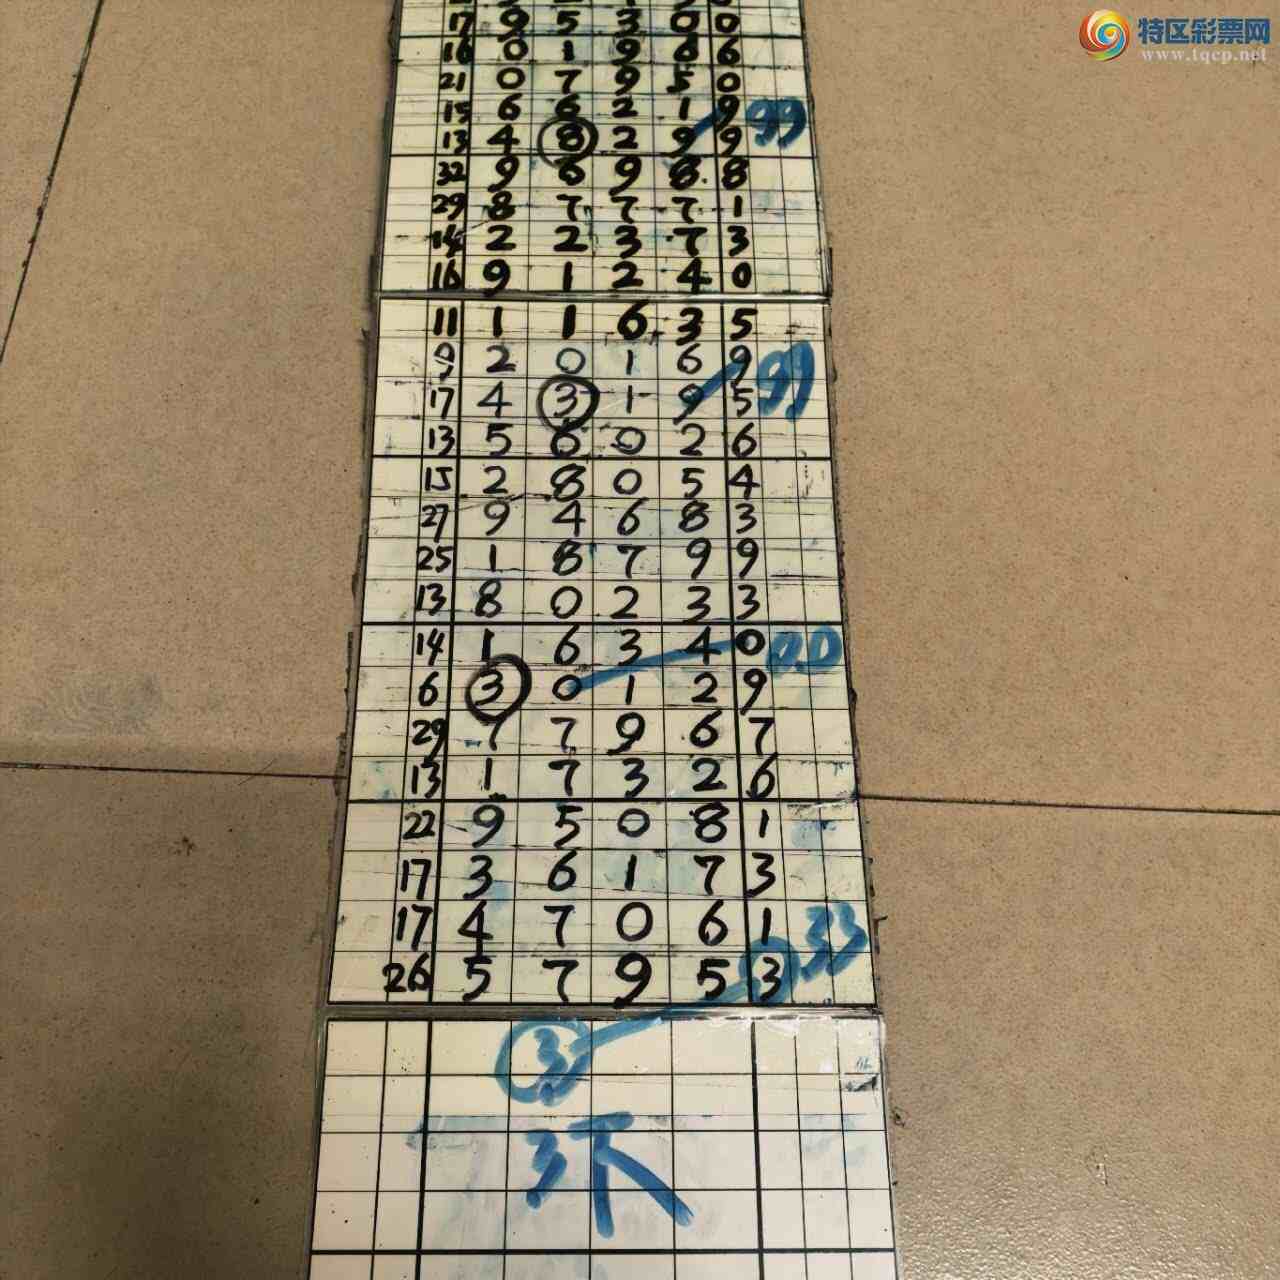 特区彩票网
www.tqcp.net
17 9 5 3 0 0
16 0 1 9 6 6
21 0 7 9 5 0
15 6 6 2 1 9 99
13 4 8 2 9 9
32 9 6 9 8 8
29 8 7 7 7 1
2 2 3 7 3
16 9 1 2 4 0
11 1 1 6 3 5
9 2 0 1 6 9 99
17 4 3 1 9 5
13 5 6 0 2 6
15 2 8 0 5 4
27 9 4 6 8 3
25 1 8 7 9 9
13 8 0 2 3 3
14 1 6 3 4 0 00
6 3 0 1 2 9
29 7 7 9 6 7
13 1 7 3 2 6
22 9 5 0 8 1
17 3 6 1 7 3
17 4 7 0 6 1 33
26 5 7 9 5 3
3
3下